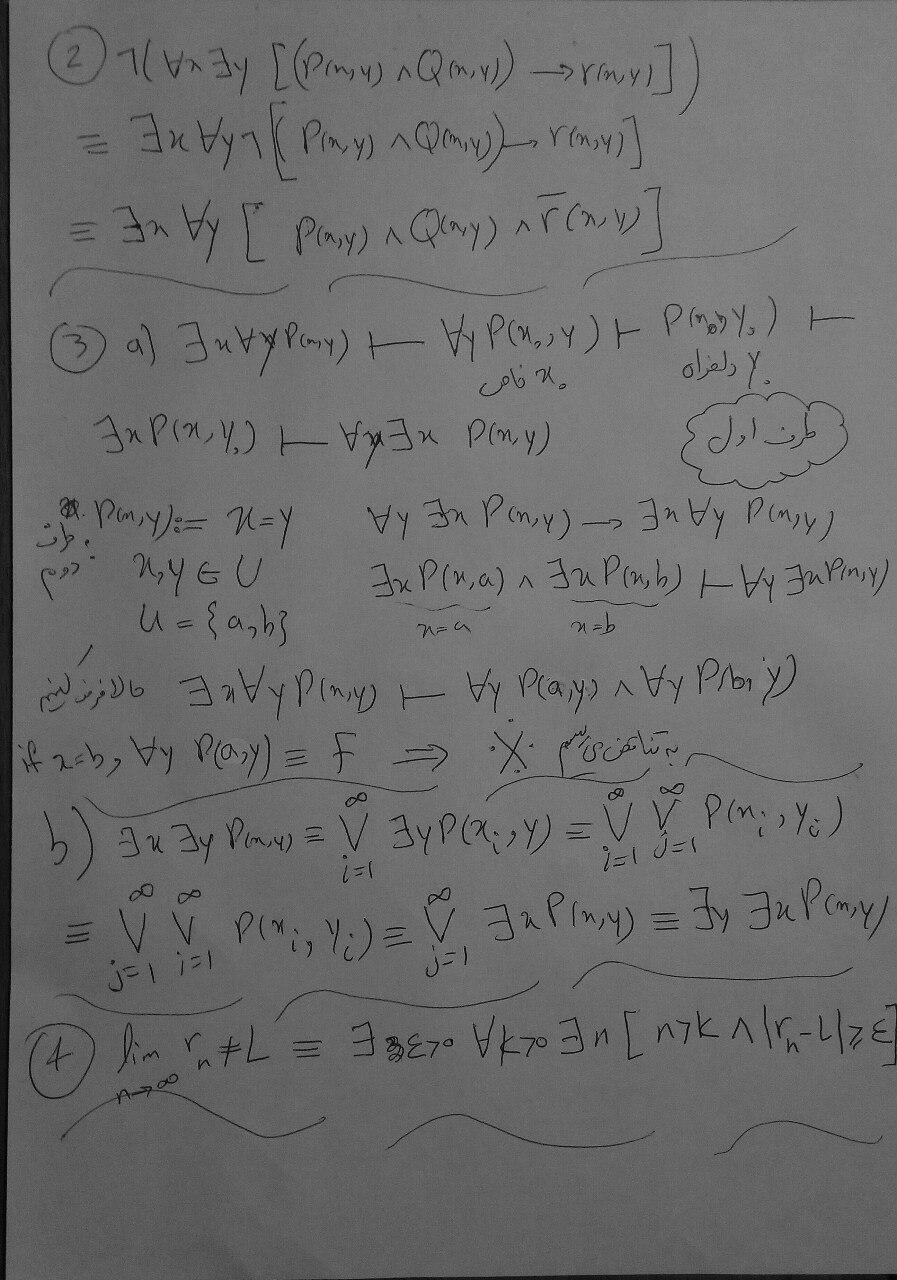 ② ¬(∀x ∃y [(P(x,y) ∧ Q(x,y)) → r(x,y)])
≡ ∃x ∀y ¬[(P(x,y) ∧ Q(x,y)) → r(x,y)]
≡ ∃x ∀y [P(x,y) ∧ Q(x,y) ∧ r̅(x,y)]
③ a) ∃x ∀y P(x,y) ⊢ ∀y P(x₀,y) ⊢ P(x₀,y₀) ⊢
x₀ خاص y₀ دلخواه
∃x P(x,y₀) ⊢ ∀y ∃x P(x,y) طرف اول
طرف دوم P(x,y) := x=y ∀y ∃x P(x,y) → ∃x ∀y P(x,y)
x,y ∈ U ∃x P(x,a) ∧ ∃x P(x,b) ⊢ ∀y ∃x P(x,y)
U = {a,b} x=a x=b
حالا فرض کنیم ∃x ∀y P(x,y) ⊢ ∀y P(a,y) ∧ ∀y P(b,y)
if x=b, ∀y P(a,y) ≡ F ⇒ ※ به تناقض می رسیم
b) ∃x ∃y P(x,y) ≡ ⋁_{i=1}^{∞} ∃y P(x_i,y) ≡ ⋁_{i=1}^{∞} ⋁_{j=1}^{∞} P(x_i,y_j)
≡ ⋁_{j=1}^{∞} ⋁_{i=1}^{∞} P(x_i,y_j) ≡ ⋁_{j=1}^{∞} ∃x P(x,y) ≡ ∃y ∃x P(x,y)
④ lim_{n→∞} r_n ≠ L ≡ ∃ε>0 ∀k>0 ∃n [n>k ∧ |r_n-L| ≥ ε]